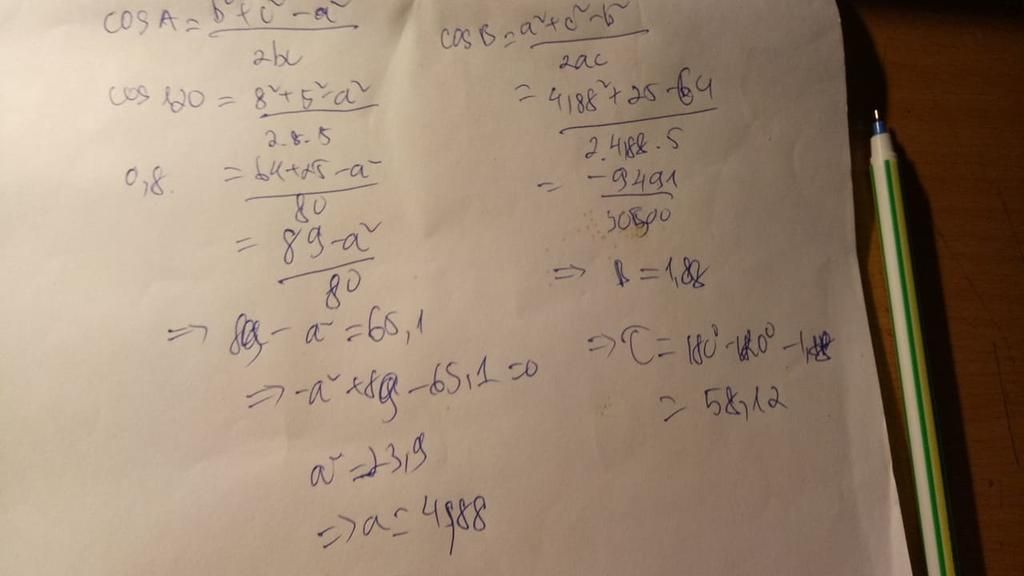 cos A = b² + c² - a² / 2bc
cos 120 = 8² + 5² - a² / 2.8.5
0,8. = 64 + 25 - a² / 80
= 89 - a² / 80
=> 89 - a² = 65,1
=> -a² + 89 - 65,1 = 0
a² = 23,9
=> a = 4,88
cos B = a² + c² - b² / 2ac
= 4,88² + 25 - 64 / 2.4,88.5
= -9491 /
=> B = 1,88
=> C = 180° - 120° - 1,88
= 58,12